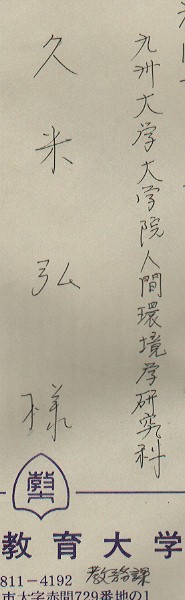 九州大学大学院人間環境学研究科
久米弘様
教育大学
811－4192 教務課
市大字赤間729番地の1